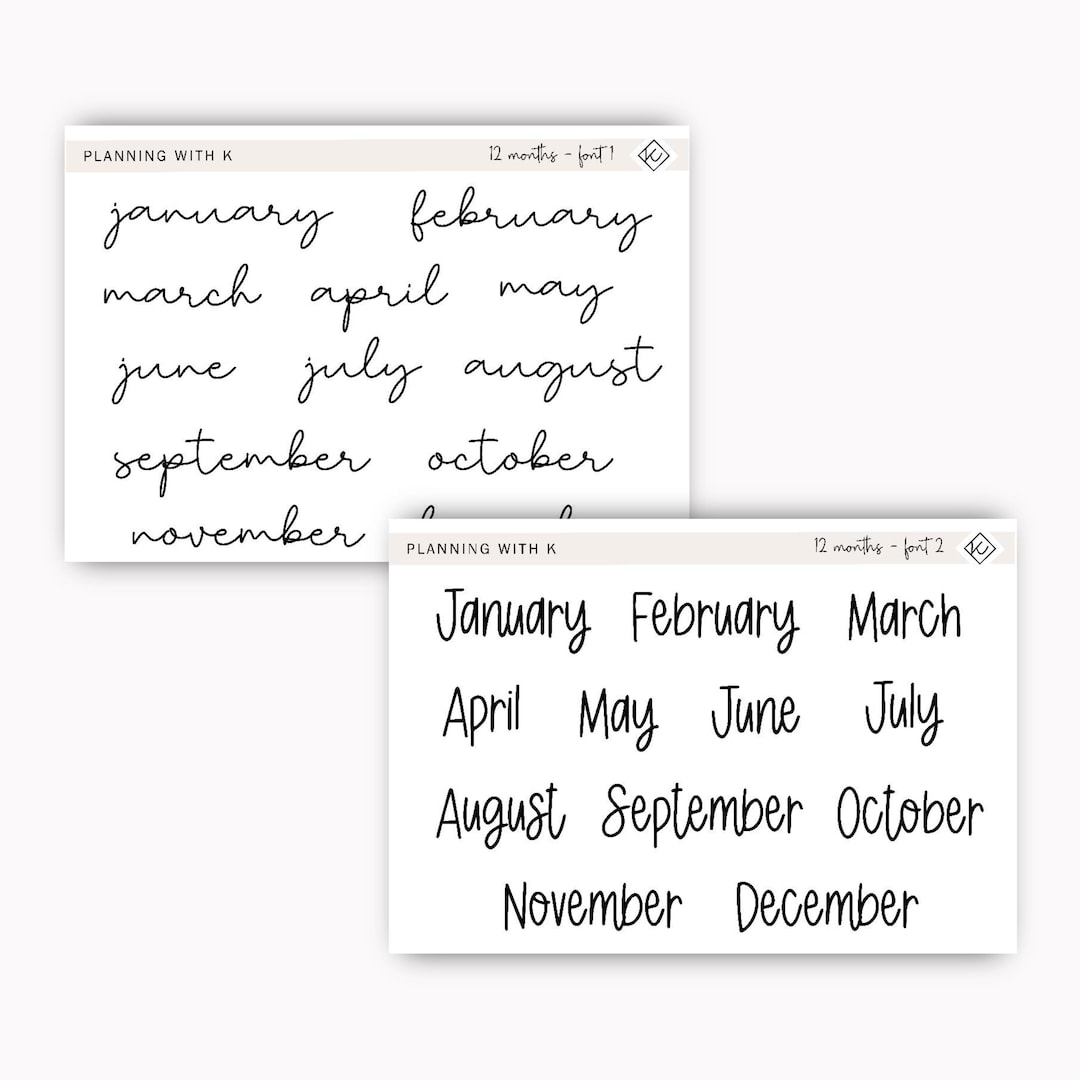 PLANNING WITH K 12 months - font 1 K
january february
march april may
june july august
september october
november
PLANNING WITH K 12 months - font 2 K
January February March
April May June July
August September October
November December